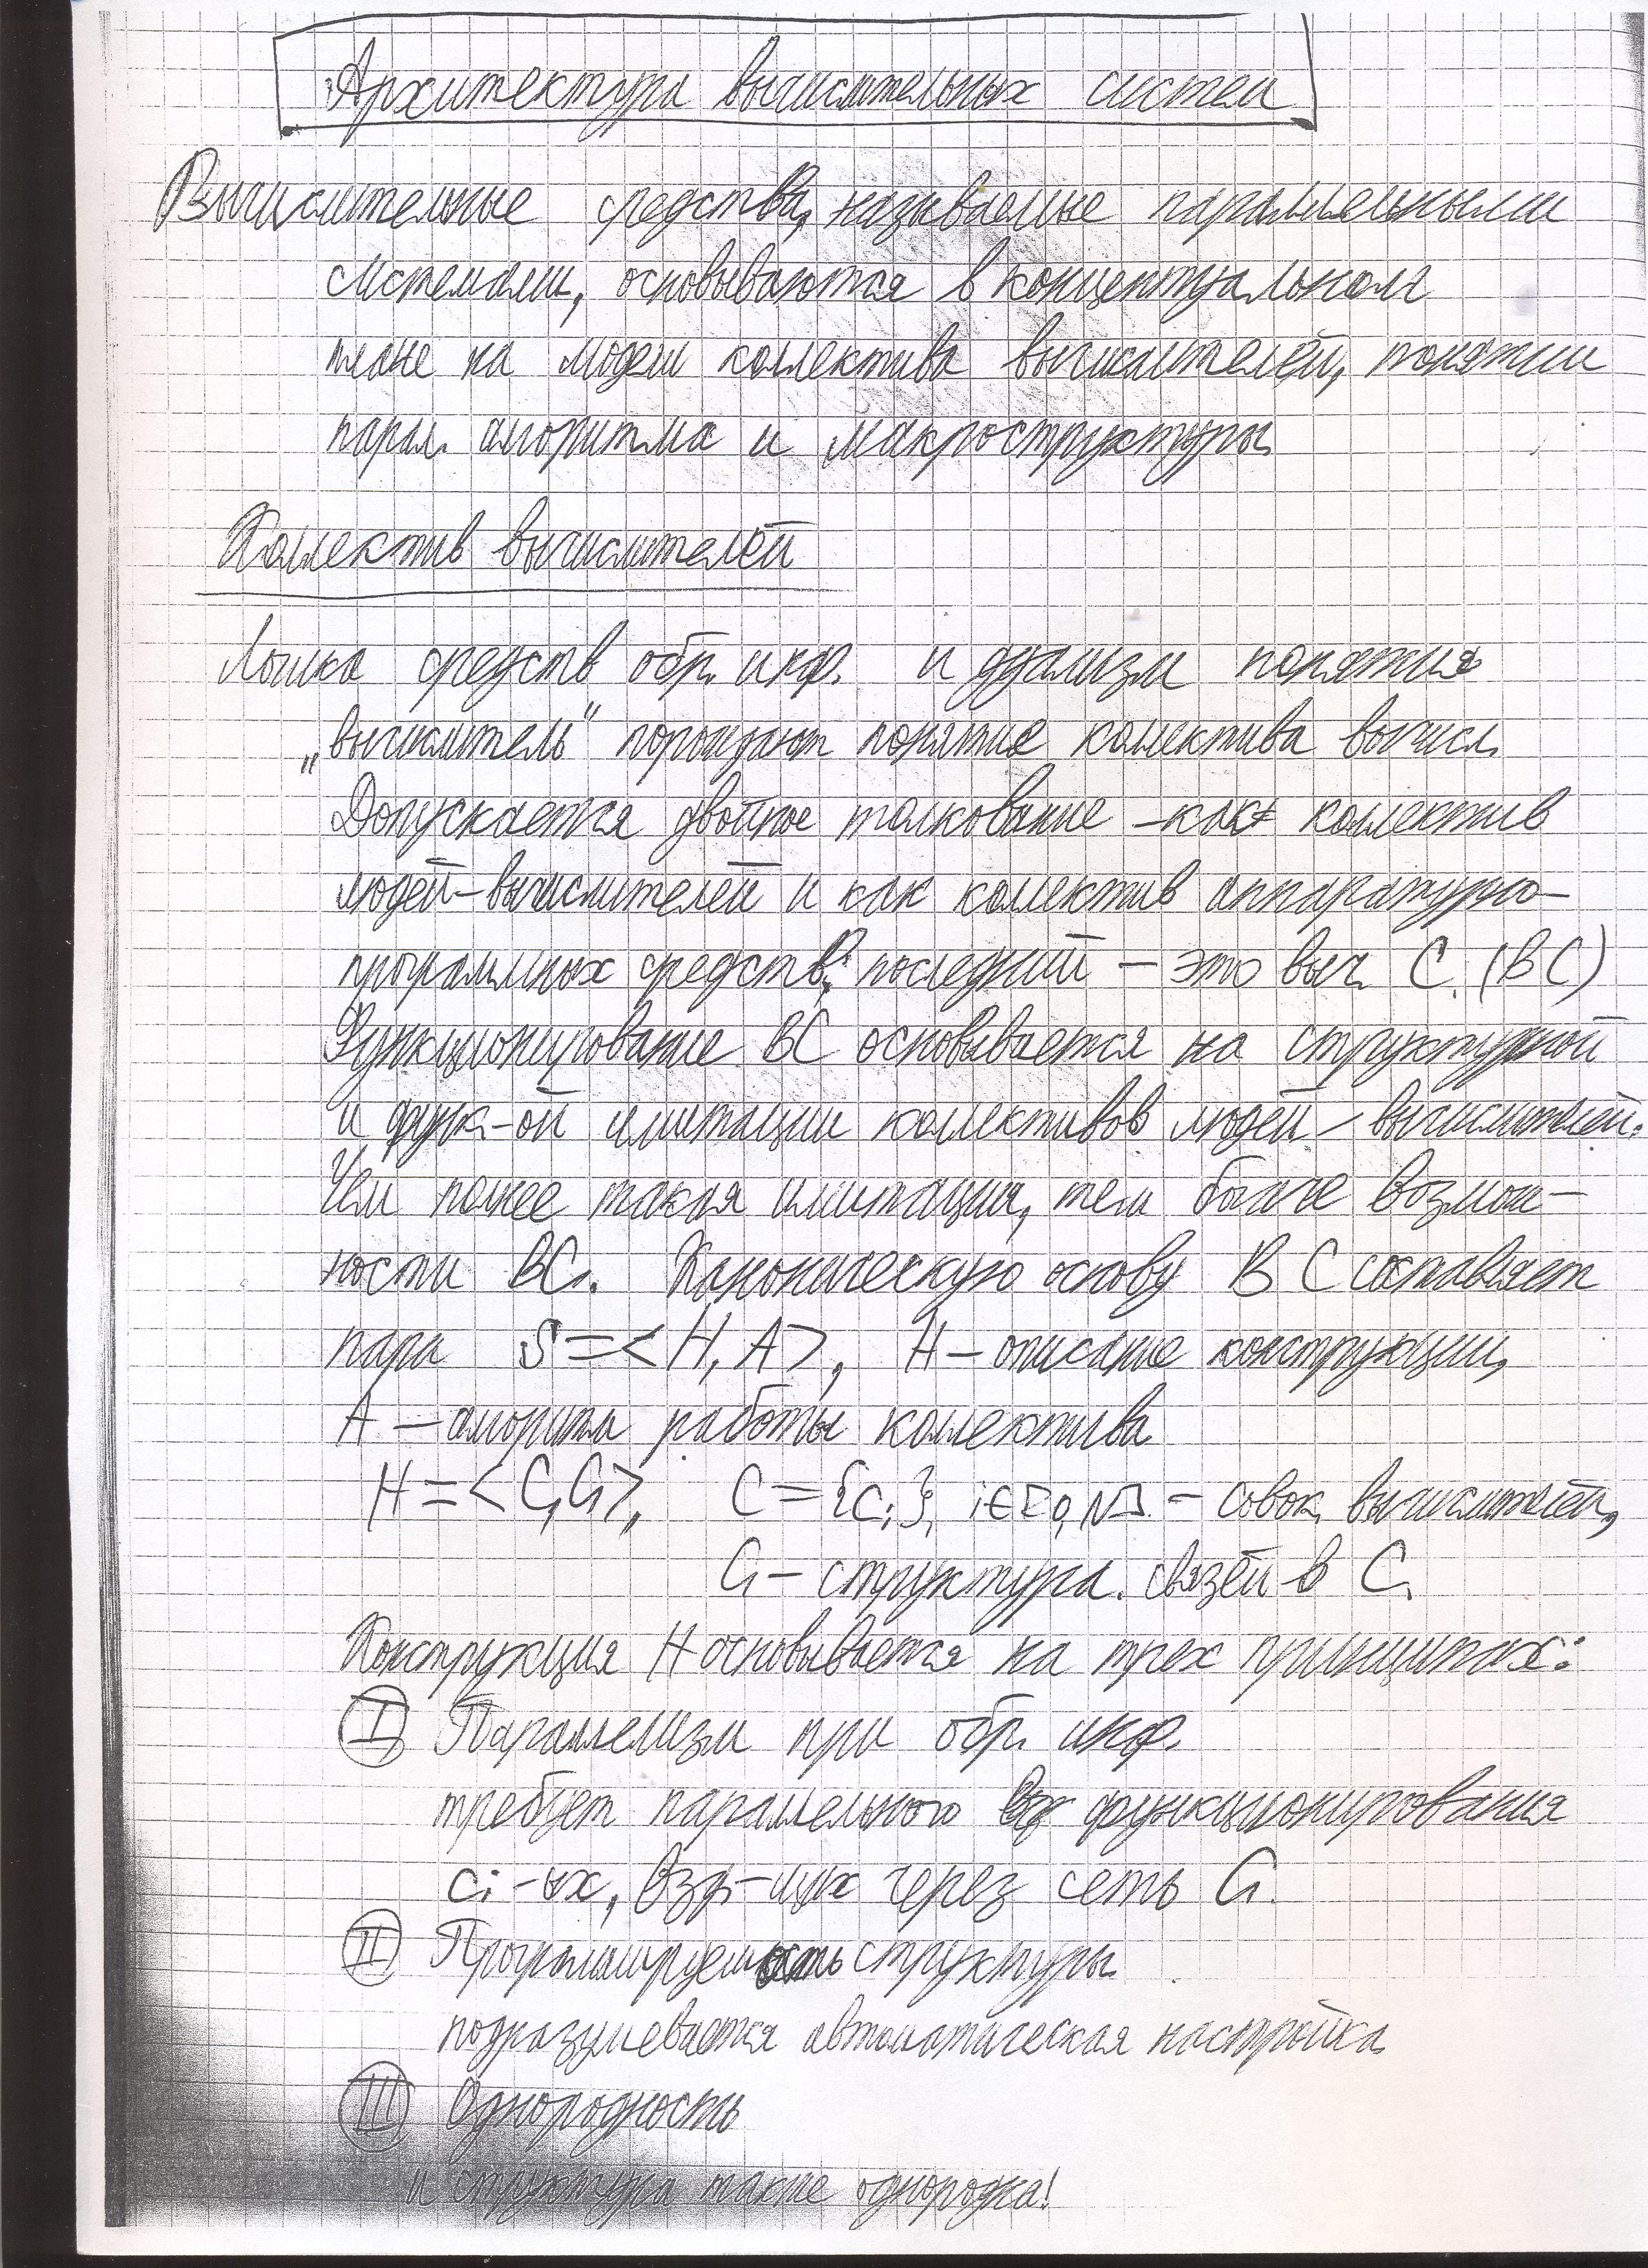 Архитектура вычислительных систем
Вычислительные средства, называемые параллельными
системами, основываются в концептуальном
плане на модели коллектива вычислителей, понятии
парал. алгоритма и макроструктуры
Коллектив вычислителей
Логика средств обр. инф. и дуализм понятия
„вычислитель“ порождают понятие коллектива вычисл.
Допускается двойное толкование – как коллектив
людей-вычислителей и как коллектив аппаратурно-
программных средств; последний – это выч. С. (ВС)
Функционирование ВС основывается на структурной
и функ-ой имитации коллективов людей-вычислителей.
Чем полнее такая имитация, тем больше возмож-
ности ВС. Каноническую основу ВС составляет
пара S=<H, A>, H – описание конструкции,
A – алгоритм работы коллектива
H=<C,G>, C={ci}, i∈[0,N] – совок. вычислителей,
G – структура связей в C.
Конструкция H основывается на трех принципах:
I Параллелизм при обр. инф.
требует параллельного функционирования
ci-ых, вз-щих через сеть G.
II Программируемость структуры
подразумевается автоматическая настройка
III Однородность
и структура также однородна!